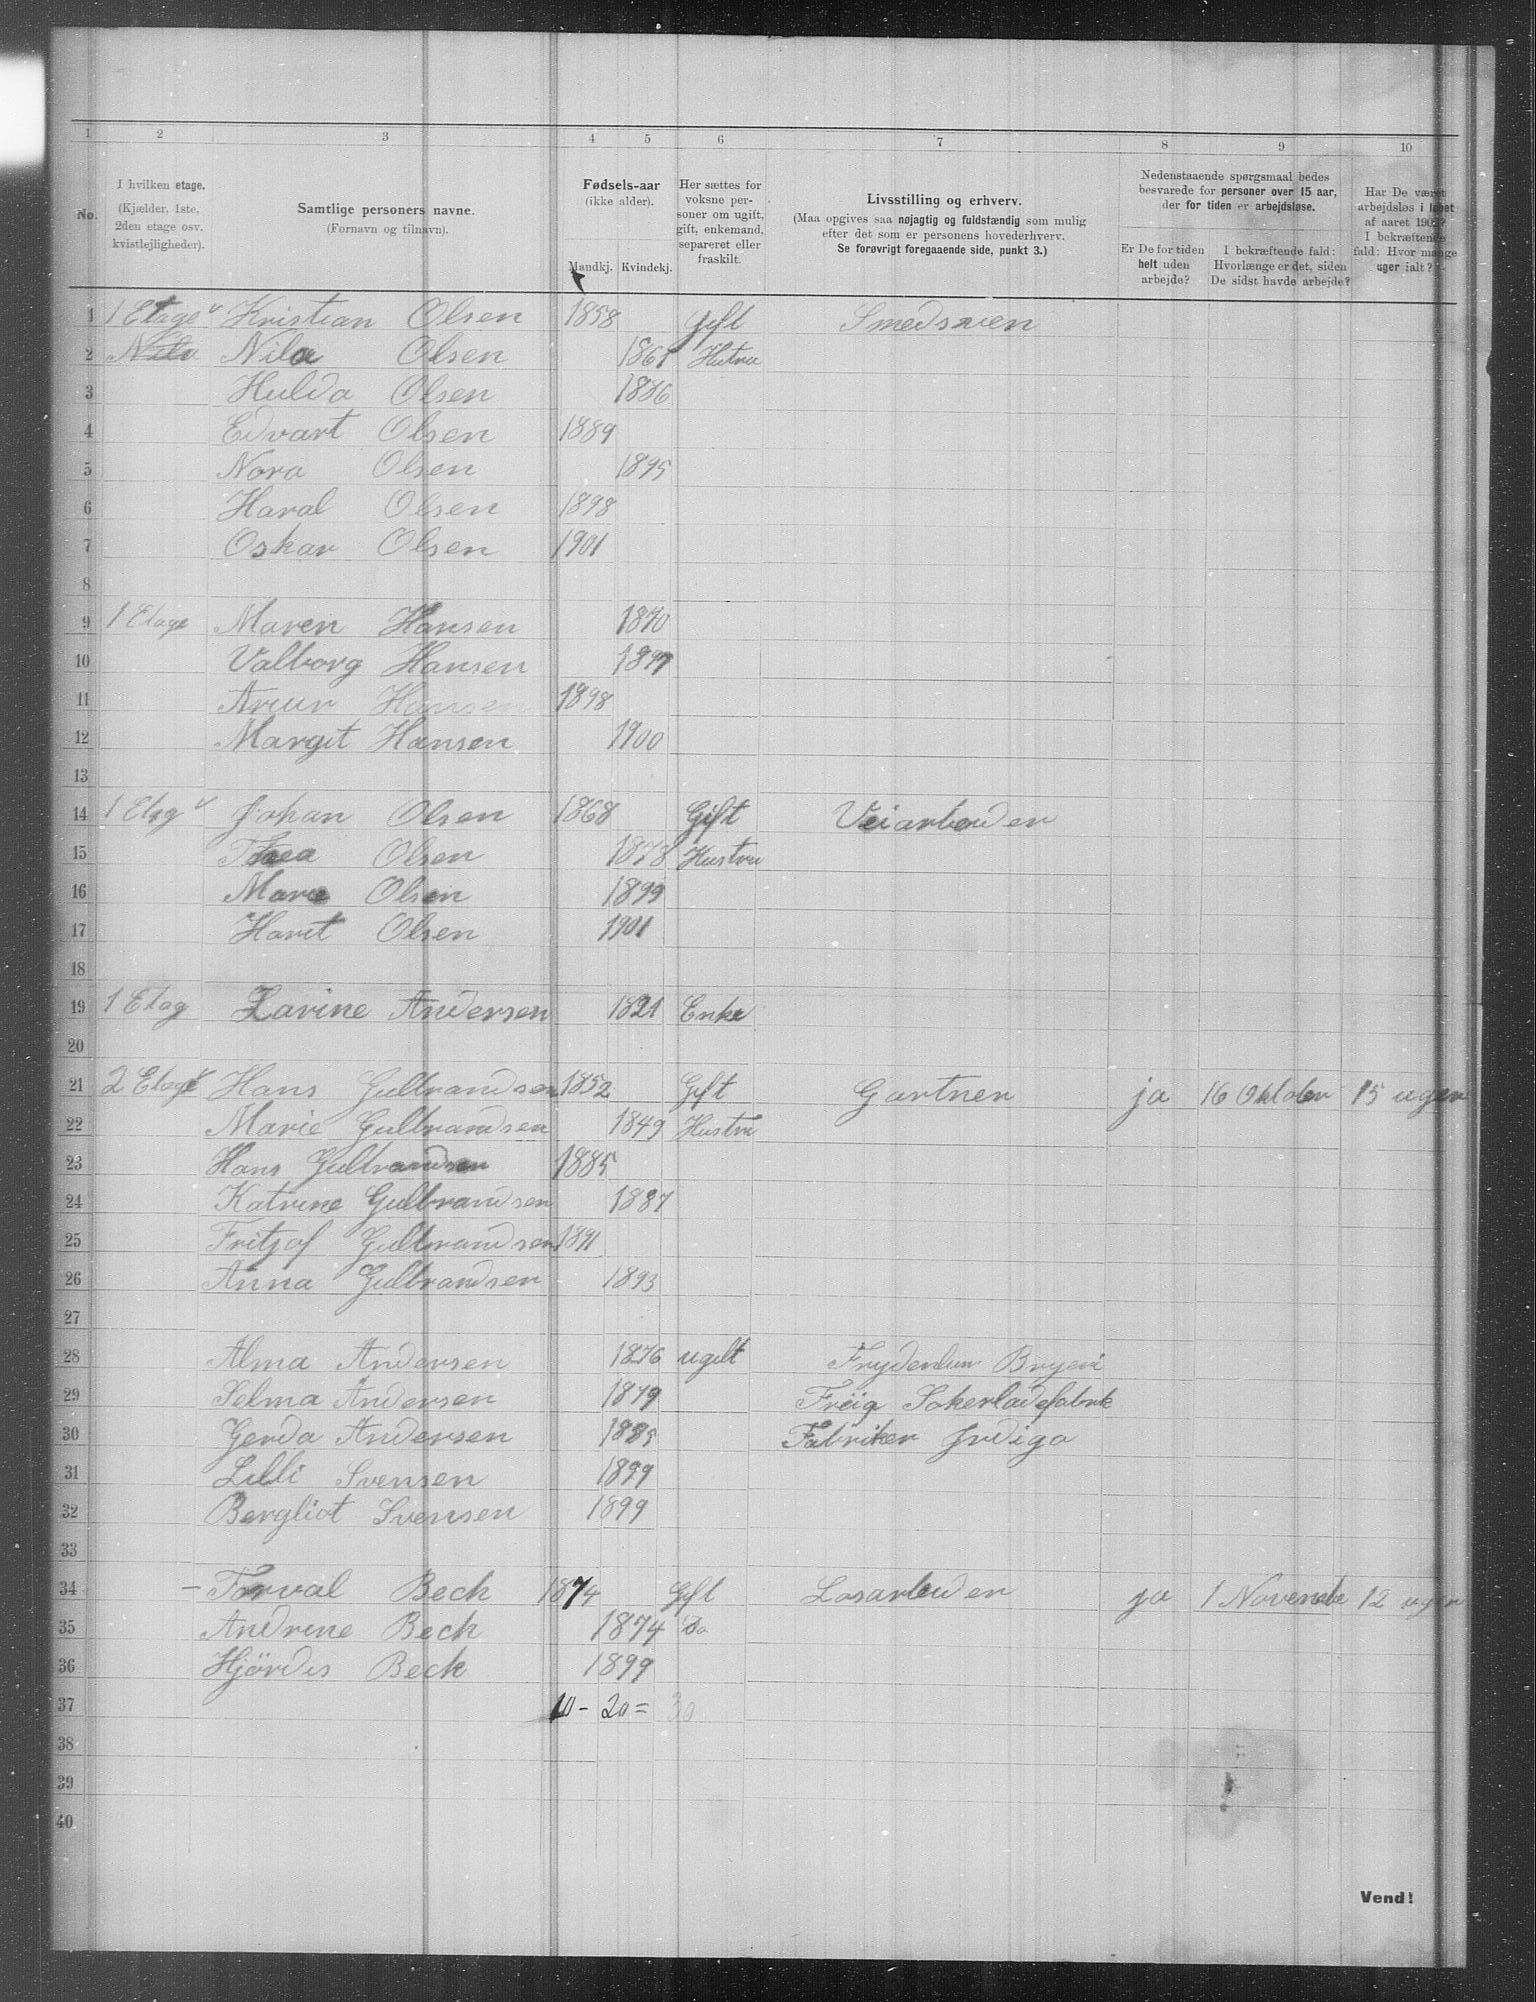 1 2 3 4 5 6 7 8 9 10
No.
I hvilken etage.
(Kjælder, 1ste, 2den etage osv. kvistlejligheder).
Samtlige personers navne.
(Fornavn og tilnavn).
Fødsels-aar
(ikke alder).
Mandkj. Kvindekj.
Her sættes for voksne personer om ugift, gift, enkemand, separeret eller fraskilt.
Livsstilling og erhverv.
(Maa opgives saa nøjagtig og fuldstændig som mulig efter det som er personens hovederhverv.
Se forøvrigt foregaaende side, punkt 3.)
Nedenstaaende spørgsmaal bedes besvarede for personer over 15 aar, der for tiden er arbejdsløse.
Er De for tiden helt uden arbejde?
I bekræftende fald: Hvorlænge er det, siden De sidst havde arbejde?
Har De været arbejdsløs i løbet af aaret 1902? I bekræftende fald: Hvor mange uger ialt?
1 1 Etage Kristian Olsen 1858 Gift Smedsven
2 Nila Nila Olsen 1861 Hutru
3 Hulda Olsen 1886
4 Edvart Olsen 1889
5 Nora Olsen 1895
6 Haral Olsen 1898
7 Oskar Olsen 1901
8
9 1 Etage Maren Hansen 1870
10 Valborg Hansen 1897
11 Hansen 1898
12 Margit Hansen 1900
13
14 1 Etag Johan Olsen 1868 Gift Veiarbeider
15 Olsen 1873 Hustru
16 Olsen 1899
17 Harit Olsen 1901
18
19 1 Etag Larine Andersen 1821 Enke
20
21 2 Etage Hans Gulbrandsen 1852 Gift Gartner ja 16 Oktober 15 uger
22 Marie Gulbrandsen 1849 Hustru
23 Hans Gulbrandsen 1885
24 Katrine Gulbrandsen 1887
25 Fritjof Gulbrandsen 1891
26 Anna Gulbrandsen 1893
27
28 Alma Andersen 1876 ugift Frydenlun Bryeri
29 Selma Andersen 1879 Freia Sokerladefabrik
30 Gerda Andersen 1885 Fabriker Indigo
31 Lilli Svensen 1899
32 Bergliot Svensen 1899
33
34 – Torval Beck 1874 Gift Losarbeider ja 1 Novembe 12 uger
35 Andrine Beck 1874 Do
36 Hjørdis Beck 1899
37 10 – 20 = 30
38
39
40
Vend!